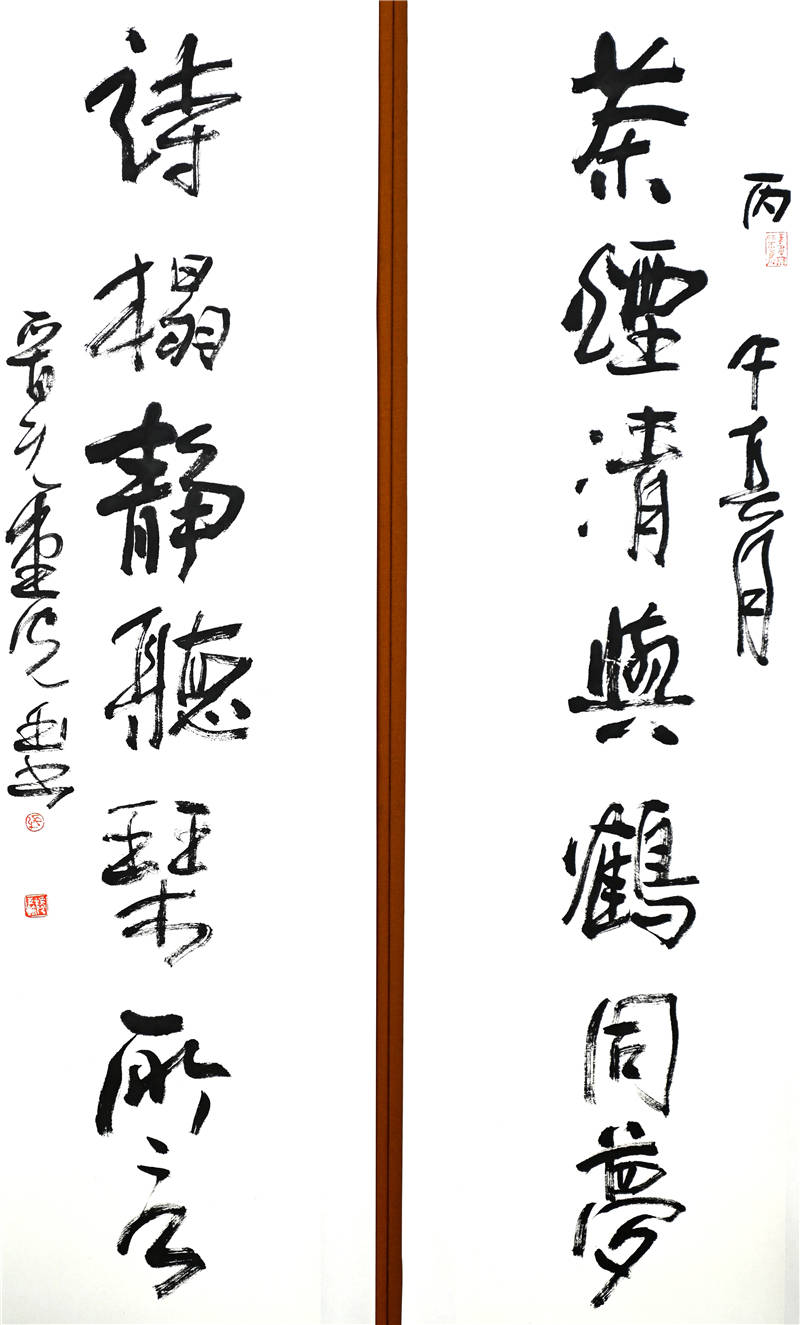 丙午月
茶煙清與鶴同夢
詩榻靜聽琴所言